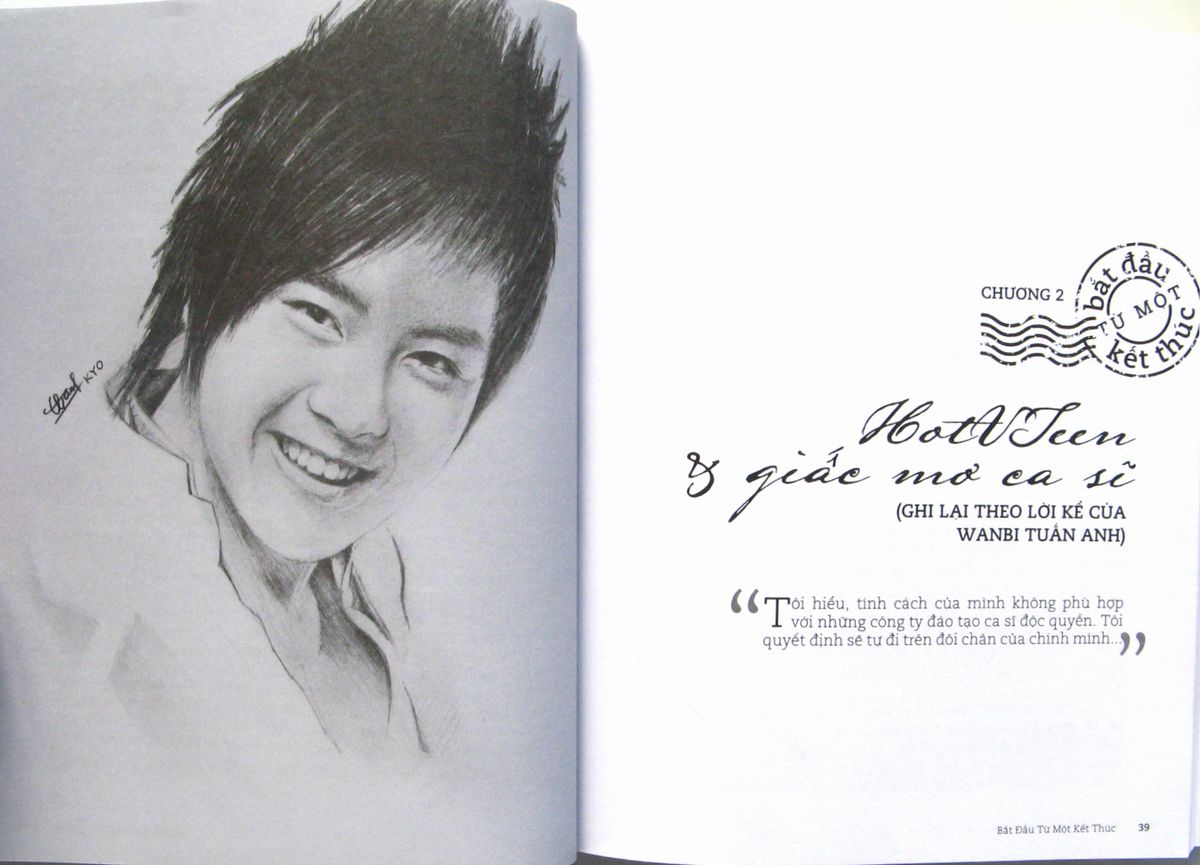 KYO
CHƯƠNG 2
bắt đầu
TỪ MỘT
kết thúc
HotVTeen
& giấc mơ ca sĩ
(GHI LẠI THEO LỜI KỂ CỦA
WANBI TUẤN ANH)
“Tôi hiểu, tính cách của mình không phù hợp
với những công ty đào tạo ca sĩ độc quyền. Tôi
quyết định sẽ tự đi trên đôi chân của chính mình...”
Bắt Đầu Từ Một Kết Thúc 39